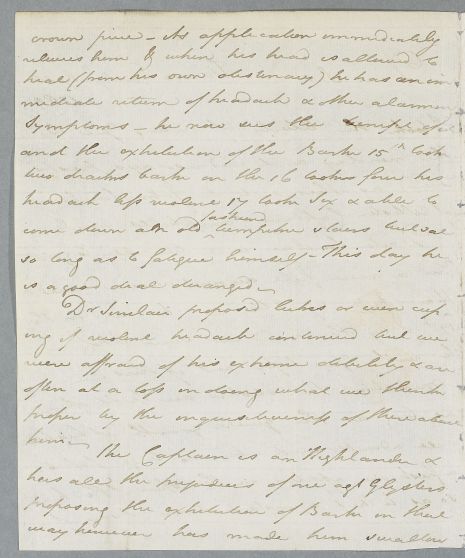 crown piece – As application immediately
relieves him & when his head is allowed to
heal (from his own obstinancy) he has an im
mediate return of headach & other alarming
Symptoms – he now sees the
and the exhibition of the Bark 15th took
two drachms bark on the 16 took four his
headach less violent 17 took Six & able to
come down an old fashioned stairs but sat
so long as to fatigue himself – This day he
is a good deal deranged –
Dr Sinclair proposed lukes or even cup
ing if violent headach continued but we
were affraid of his extreme debility & are
often at a loss in doing what we think
proper by the inquisitiveness of those about
him –
The Captain is an Highlander &
has all the prejudices of one agt Glysters
proposing the exhibition of Bark in that
way however has made him swallow